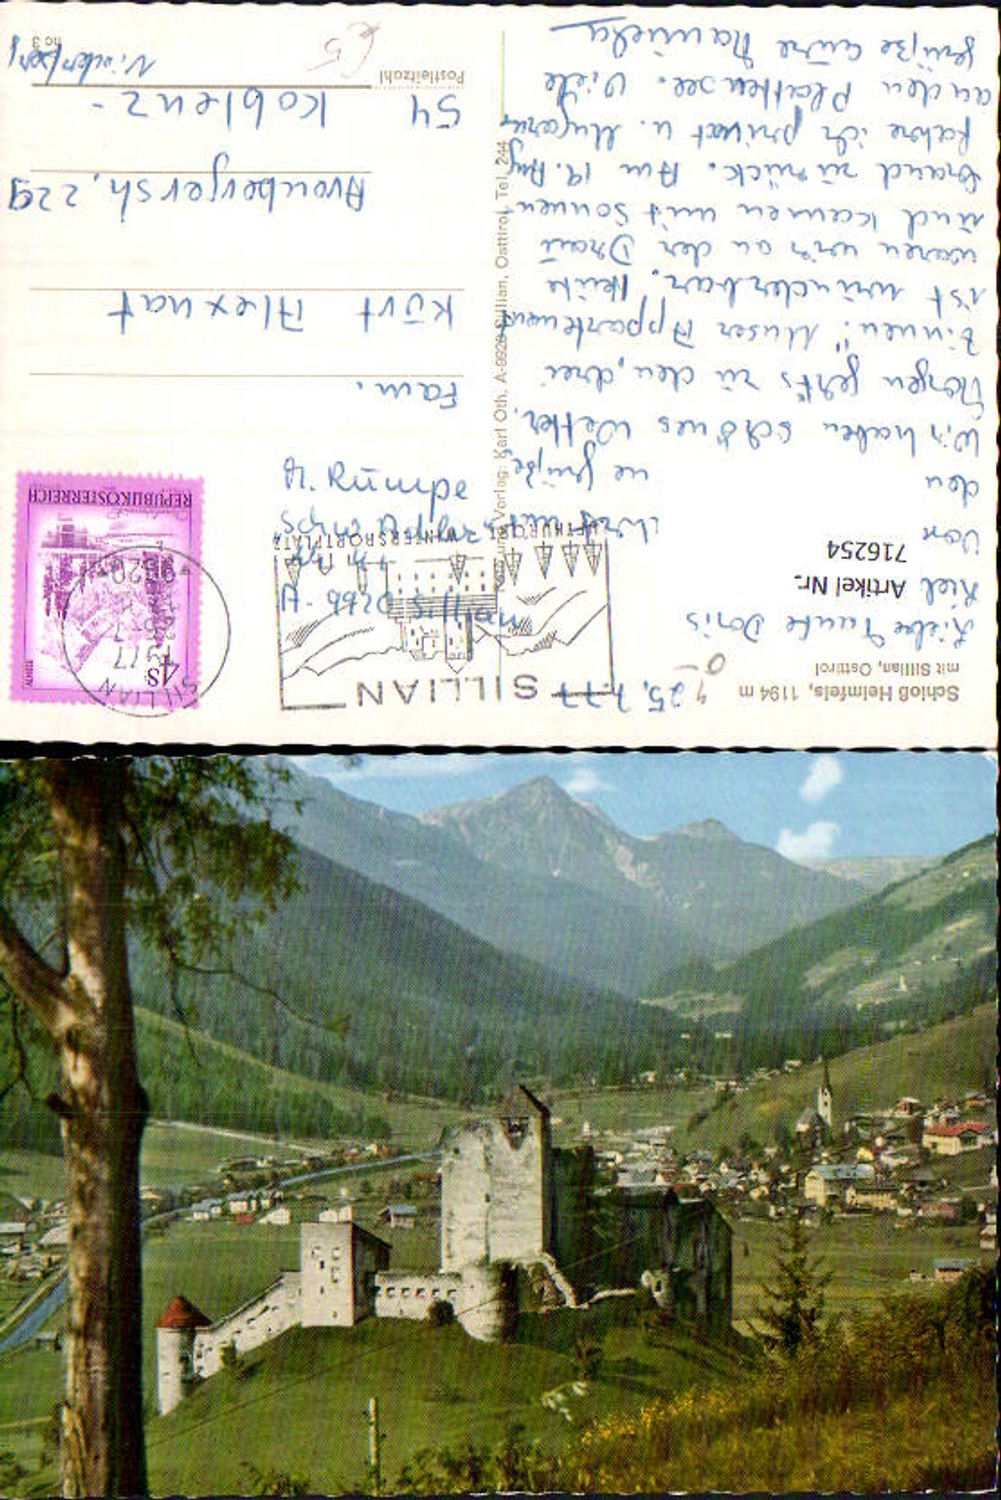 Schloß Heimfels, 1194 m
mit Sillian, Osttirol
25.7.77
Liebe Tante Doris
Artikel Nr.
716254
Viel
von
den
Wir haben schönes Wetter.
Morgen geht's zu den „drei
Zinnen". Unser Appartement
ist wunderbar. Heute
waren wir an der Drau
und kamen mit Sonnen-
brand zurück. Am 19. Aug
fahre ich privat n. Ungarn
an den Plattensee. Viele
Grüße Eure Manuela
Verlag: Karl Oth, A-9920 Sillian, Osttirol, Tel. 244
SILLIAN
LUFTKURORT WINTERSPORTPLATZ
A-9920 Sillian
M. Rümpe
Fam.
Kurt Alexnat
Arenbergerstr. 229
54 Koblenz-
Niederberg
Postleitzahl
€5
REPUBLIK ÖSTERREICH
4S
SILLIAN
1977
9920